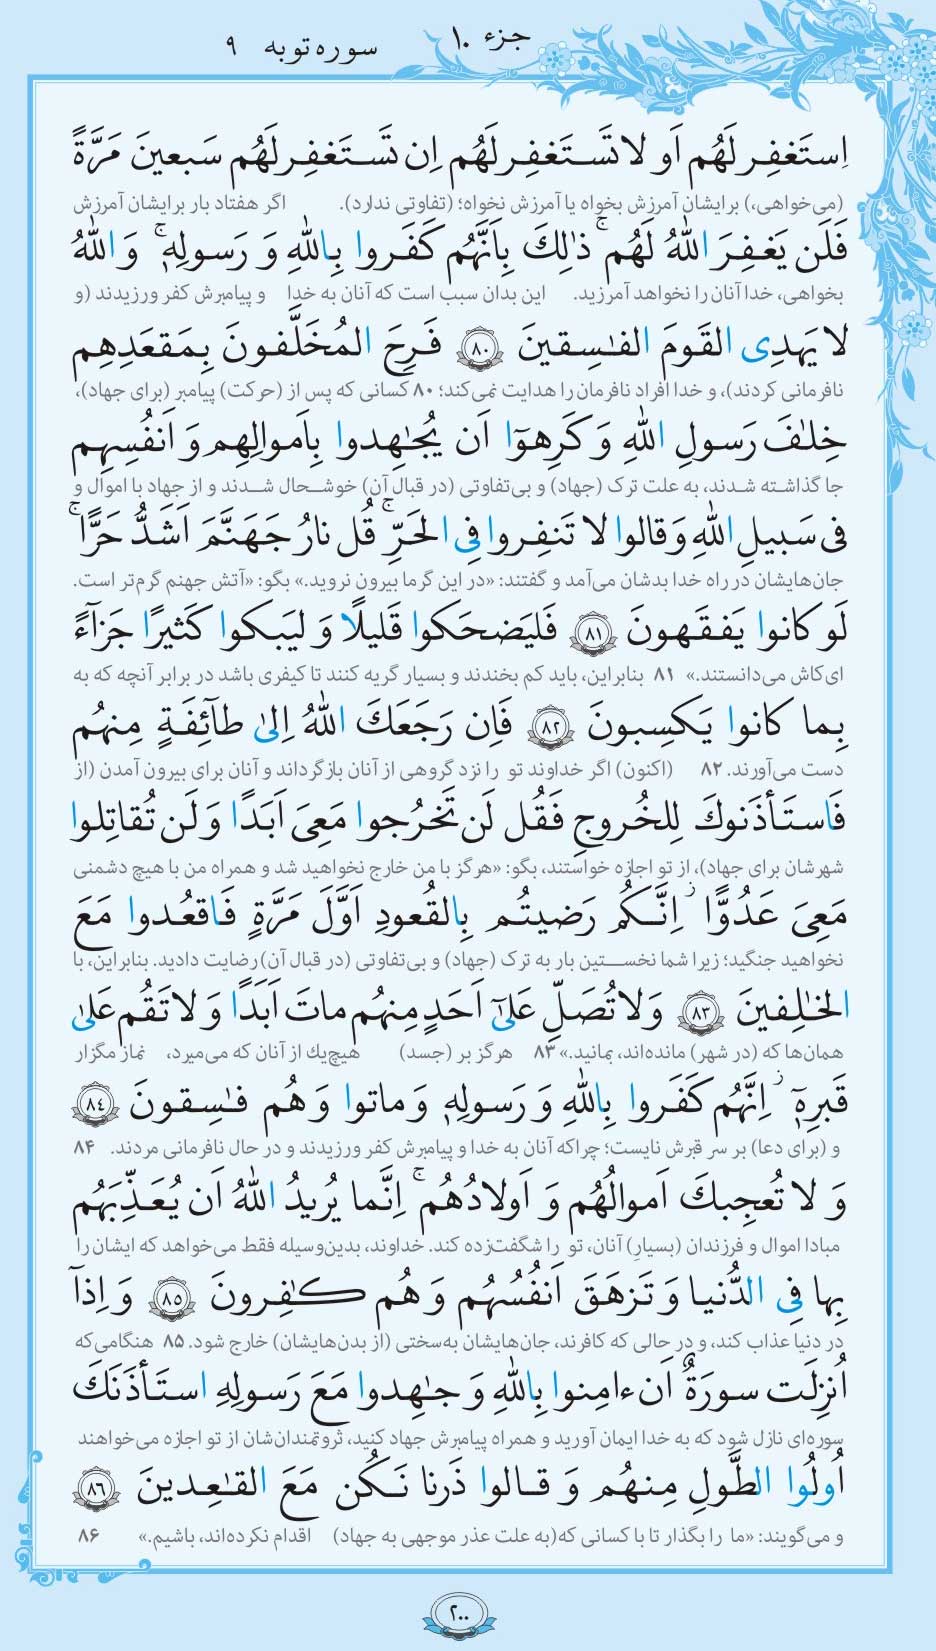 جزء ۱۰
سوره توبه ۹
اِستَغفِر لَهُم اَو لا تَستَغفِر لَهُم اِن تَستَغفِر لَهُم سَبعینَ مَرَّةً
(می‌خواهی،) برایشان آمرزش بخواه یا آمرزش نخواه؛ (تفاوتی ندارد). اگر هفتاد بار برایشان آمرزش
فَلَن یَغفِرَ اللهُ لَهُم ۚ ذٰلِکَ بِاَنَّهُم کَفَروا بِاللهِ وَ رَسولِهٖ ۚ وَ اللهُ
بخواهی، خدا آنان را نخواهد آمرزید. این بدان سبب است که آنان به خدا و پیامبرش کفر ورزیدند (و
لا یَهدِی القَومَ الفٰسِقینَ ﴿۸۰﴾ فَرِحَ المُخَلَّفونَ بِمَقعَدِهِم
نافرمانی کردند)، و خدا افراد نافرمان را هدایت نمی‌کند؛ ۸۰ کسانی که پس از (حرکت) پیامبر (برای جهاد)،
خِلٰفَ رَسولِ اللهِ وَ کَرِهوٓا اَن یُجٰهِدوا بِاَموالِهِم وَ اَنفُسِهِم
جا گذاشته شدند، به علت ترک (جهاد) و بی‌تفاوتی (در قبال آن) خوشحال شدند و از جهاد با اموال و
فی سَبیلِ اللهِ وَ قالوا لا تَنفِروا فِی الحَرِّ ۚ قُل نارُ جَهَنَّمَ اَشَدُّ حَرًّا ۚ
جان‌هایشان در راه خدا بدشان می‌آمد و گفتند: «در این گرما بیرون نروید.» بگو: «آتش جهنم گرم‌تر است.
لَو کانوا یَفقَهونَ ﴿۸۱﴾ فَلیَضحَکوا قَلیلًا وَ لیَبکوا کَثیرًا جَزآءً
ای‌کاش می‌دانستند.» ۸۱ بنابراین، باید کم بخندند و بسیار گریه کنند تا کیفری باشد در برابر آنچه که به
بِما کانوا یَکسِبونَ ﴿۸۲﴾ فَاِن رَجَعَکَ اللهُ اِلیٰ طآئِفَةٍ مِنهُم
دست می‌آورند. ۸۲ (اکنون) اگر خداوند تو را نزد گروهی از آنان بازگرداند و آنان برای بیرون آمدن (از
فَاستَأذَنوکَ لِلخُروجِ فَقُل لَن تَخرُجوا مَعِیَ اَبَدًا وَ لَن تُقاتِلوا
شهرشان برای جهاد)، از تو اجازه خواستند، بگو: «هرگز با من خارج نخواهید شد و همراه من با هیچ دشمنی
مَعِیَ عَدُوًّا ۖ اِنَّکُم رَضیتُم بِالقُعودِ اَوَّلَ مَرَّةٍ فَاقعُدوا مَعَ
نخواهید جنگید؛ زیرا شما نخستین بار به ترک (جهاد) و بی‌تفاوتی (در قبال آن) رضایت دادید. بنابراین، با
الخٰلِفینَ ﴿۸۳﴾ وَ لا تُصَلِّ عَلیٰٓ اَحَدٍ مِنهُم ماتَ اَبَدًا وَ لا تَقُم عَلیٰ
همان‌ها که (در شهر) مانده‌اند، بمانید.» ۸۳ هرگز بر (جسد) هیچ‌یک از آنان که می‌میرد، نماز مگزار
قَبرِهٖٓ ۖ اِنَّهُم کَفَروا بِاللهِ وَ رَسولِهٖ وَ ماتوا وَ هُم فٰسِقونَ ﴿۸۴﴾
و (برای دعا) بر سر قبرش نایست؛ چراکه آنان به خدا و پیامبرش کفر ورزیدند و در حال نافرمانی مردند. ۸۴
وَ لا تُعجِبکَ اَموالُهُم وَ اَولادُهُم ۚ اِنَّما یُریدُ اللهُ اَن یُعَذِّبَهُم
مبادا اموال و فرزندان (بسیارِ) آنان، تو را شگفت‌زده کند. خداوند، بدین‌وسیله فقط می‌خواهد که ایشان را
بِها فِی الدُّنیا وَ تَزهَقَ اَنفُسُهُم وَ هُم کٰفِرونَ ﴿۸۵﴾ وَ اِذآ
در دنیا عذاب کند، و در حالی که کافرند، جان‌هایشان به‌سختی (از بدن‌هایشان) خارج شود. ۸۵ هنگامی‌که
اُنزِلَت سورَةٌ اَن ءامِنوا بِاللهِ وَ جٰهِدوا مَعَ رَسولِهِ استَأذَنَکَ
سوره‌ای نازل شود که به خدا ایمان آورید و همراه پیامبرش جهاد کنید، ثروتمندان‌شان از تو اجازه می‌خواهند
اُولُوا الطَّولِ مِنهُم وَ قالوا ذَرنا نَکُن مَعَ القٰعِدینَ ﴿۸۶﴾
و می‌گویند: «ما را بگذار تا با کسانی که(به علت عذر موجهی به جهاد) اقدام نکرده‌اند، باشیم.» ۸۶
۲۰۰